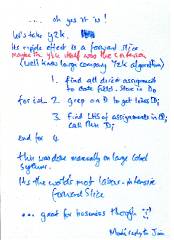 .... oh yes it is !
Let's take Y2K.
Its ripple effect is a forward slice
Maybe the Y2K itself was the criterion
(Well known large company Y2K algorithm)
1. find all direct assignments
to date fields. Store in D0
for i=1.. 2. grep on D to get lines
3. find LHS of assignments in
call them
end for 4.
this was done manually on large Cobol
systems.
It's the worlds most labour-intensive
forward slice
... great for business though :)
Jim